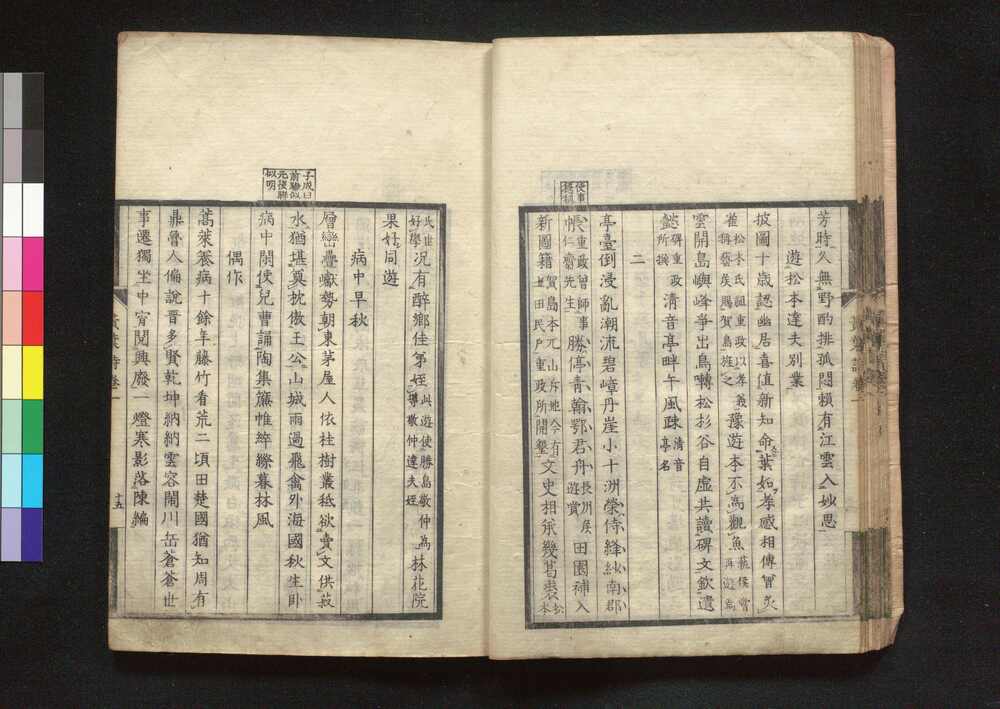 芳時久無野酌排孤悶賴有江雲入妙思
遊松本達夫別業
披圖十歲認幽居喜值新知命葉如孝感相傳曾炙
雀松本氏詛重政以孝義稱舊侯賜賀島班之豫遊本不為觀魚舊侯嘗再遊焉
雲開島嶼峰爭出鳥囀松杉谷自虛共讀碑文欽遺
懿碑重政所撰清音亭畔午風疎清音亭名
二
使事
亭臺倒浸亂潮流碧嶂丹崖小十洲榮侍絳紗南郡
帳重政曾師事仁齋先生勝停青翰鄂君舟長州侯遊賞田園補入
新圖籍賀島本亢山斥地今有上田民戶重政所開墾文史相承幾葛裘松本
氏世好學況有醉鄉佳第姪此遊使勝島敬仲為導敬仲達夫姪林花院
果好同遊
病中早秋
子成曰前聯似元後聯似明
層巒疊巘勢朝東茅屋人依桂樹叢秖欲賣文供菽
水猶堪奠枕傲王公山城雨過飛禽外海國秋生卧
病中閒使兒曹誦陶集簾帷綷縩暮林風
偶作
蒿萊養病十餘年藤竹看荒二頃田楚國猶知周有
鼎魯人偏說晉多賢乾坤納納雲容閒川岳蒼蒼世
事遷獨坐中宵閱興廢一燈寒影落陳編
十五